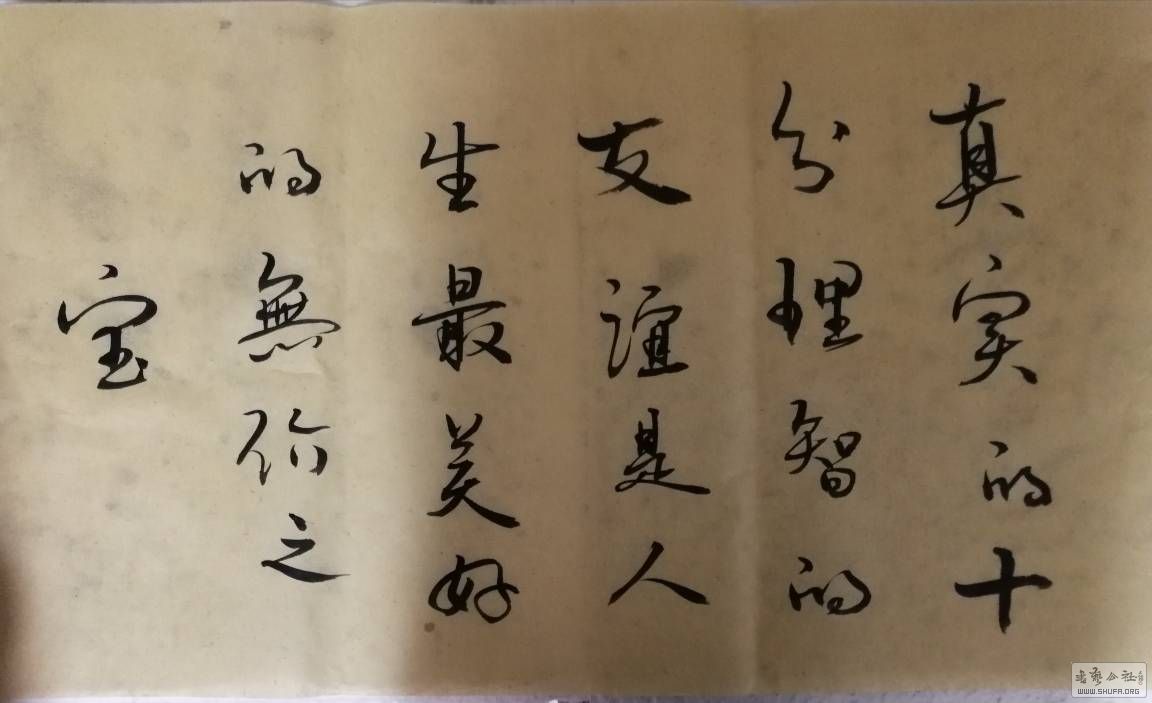 真实的十
分理智的
友谊是人
生最美好
的無价之
宝
书艺公社
WWW.SHUFA.ORG